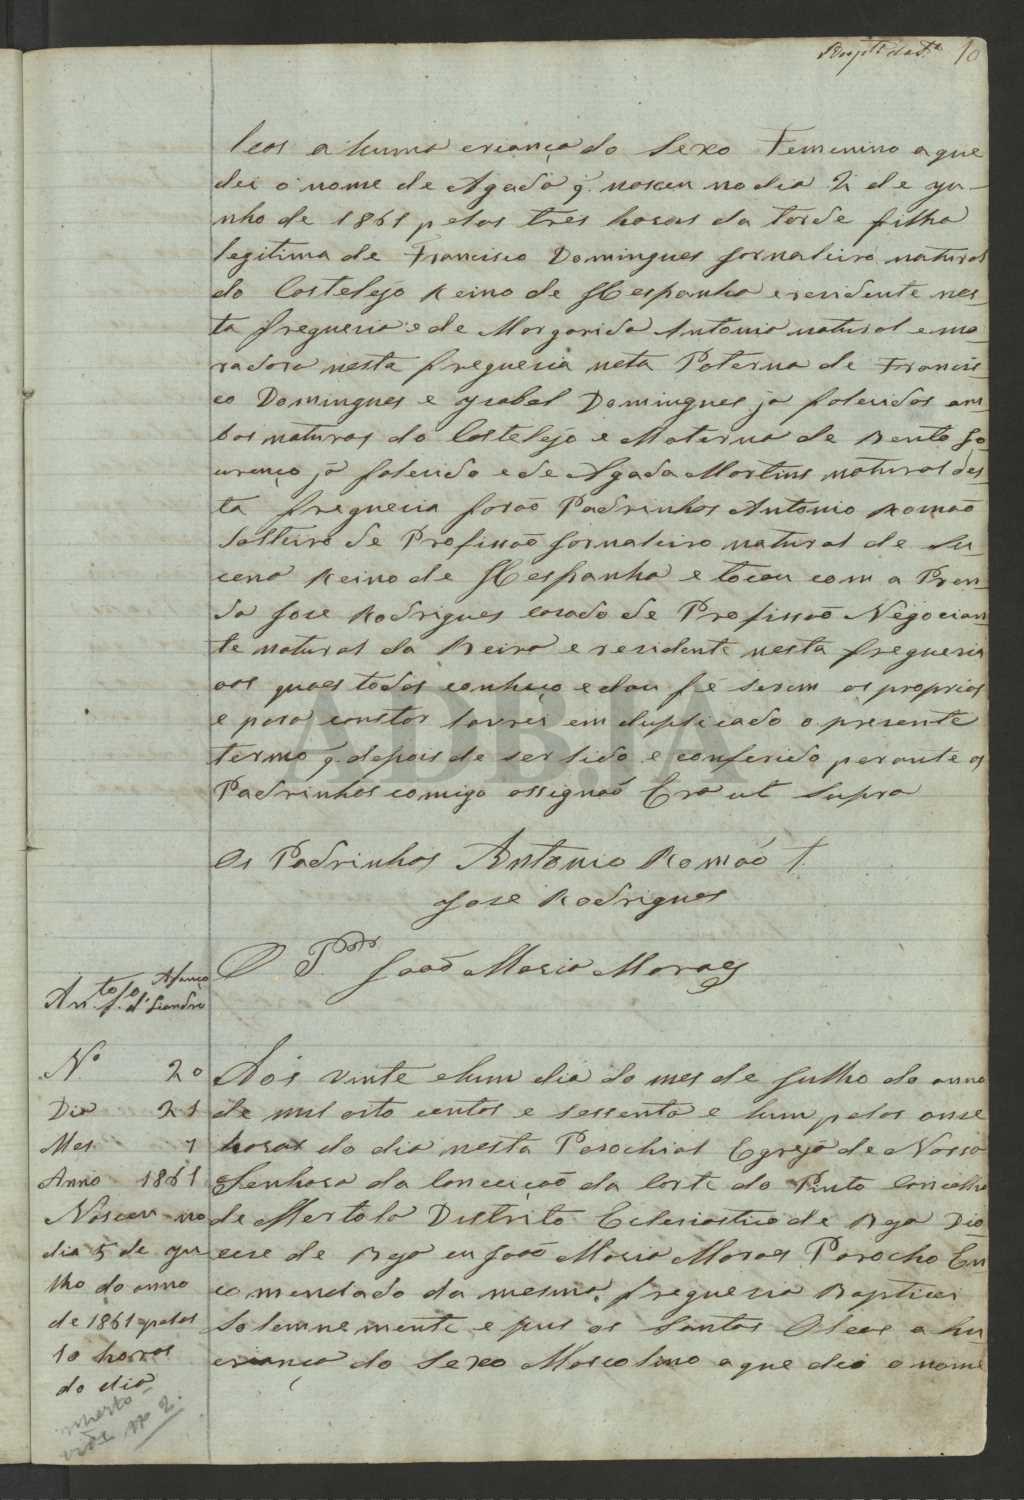 10
leos a huma criança do Sexo Femenino a que
dei o nome de Agada q. nasceu no dia 2 de Ju-
nho de 1861 pelas tres horas da tarde filha
legitima de Francisco Domingues Jornaleiro natural
do Castelejo Reino de Hespanha e residente nes-
ta freguesia e de Margarida Antonia natural e mo
radora nesta freguesia neta Paterna de Francis-
co Domingues e Ysabel Domingues já falecidos am
bos naturaes do Castelejo e Materna de Bento Lo
urenço já falecido e de Agada Martins naturaes des
ta freguesia forão Padrinhos Antonio Romão
Solteiro de Profissão Jornaleiro natural de
Reino de Hespanha e tocou com a Pren-
da Jose Rodrigues casado de Profissão Negocian-
te natural da Beira e residente nesta freguesia
aos quaes todos conheço e dou fé serem os proprios
e para constar lavrei em duplicado o presente
termo q. depois de ser lido e conferido perante os
Padrinhos comigo assignão Era ut Supra
Os Padrinhos Antonio Romão †
Jose Rodrigues
O João Maria Moraes
Nº 20
Dia 21
Mes 7
Anno 1861
Nasceu no
dia 5 de Ju
lho do anno
de 1861 pelas
10 horas
do dia
Aos vinte e hum dia do mes de Julho do anno
de mil oito centos e sessenta e hum pelas onse
horas do dia nesta Parochial Egreja de Nossa
Senhora da Conceição da Corte do Pinto Concelho
de Mertola Distrito Eclesiastico de Beja Dio
cese de Beja eu João Maria Moraes Parocho En
comendado da mesma freguesia Baptisei
Solemnemente e pus os Santos Oleos a hu
criança do Sexo Mascolino a que dei o nome
ADBJA